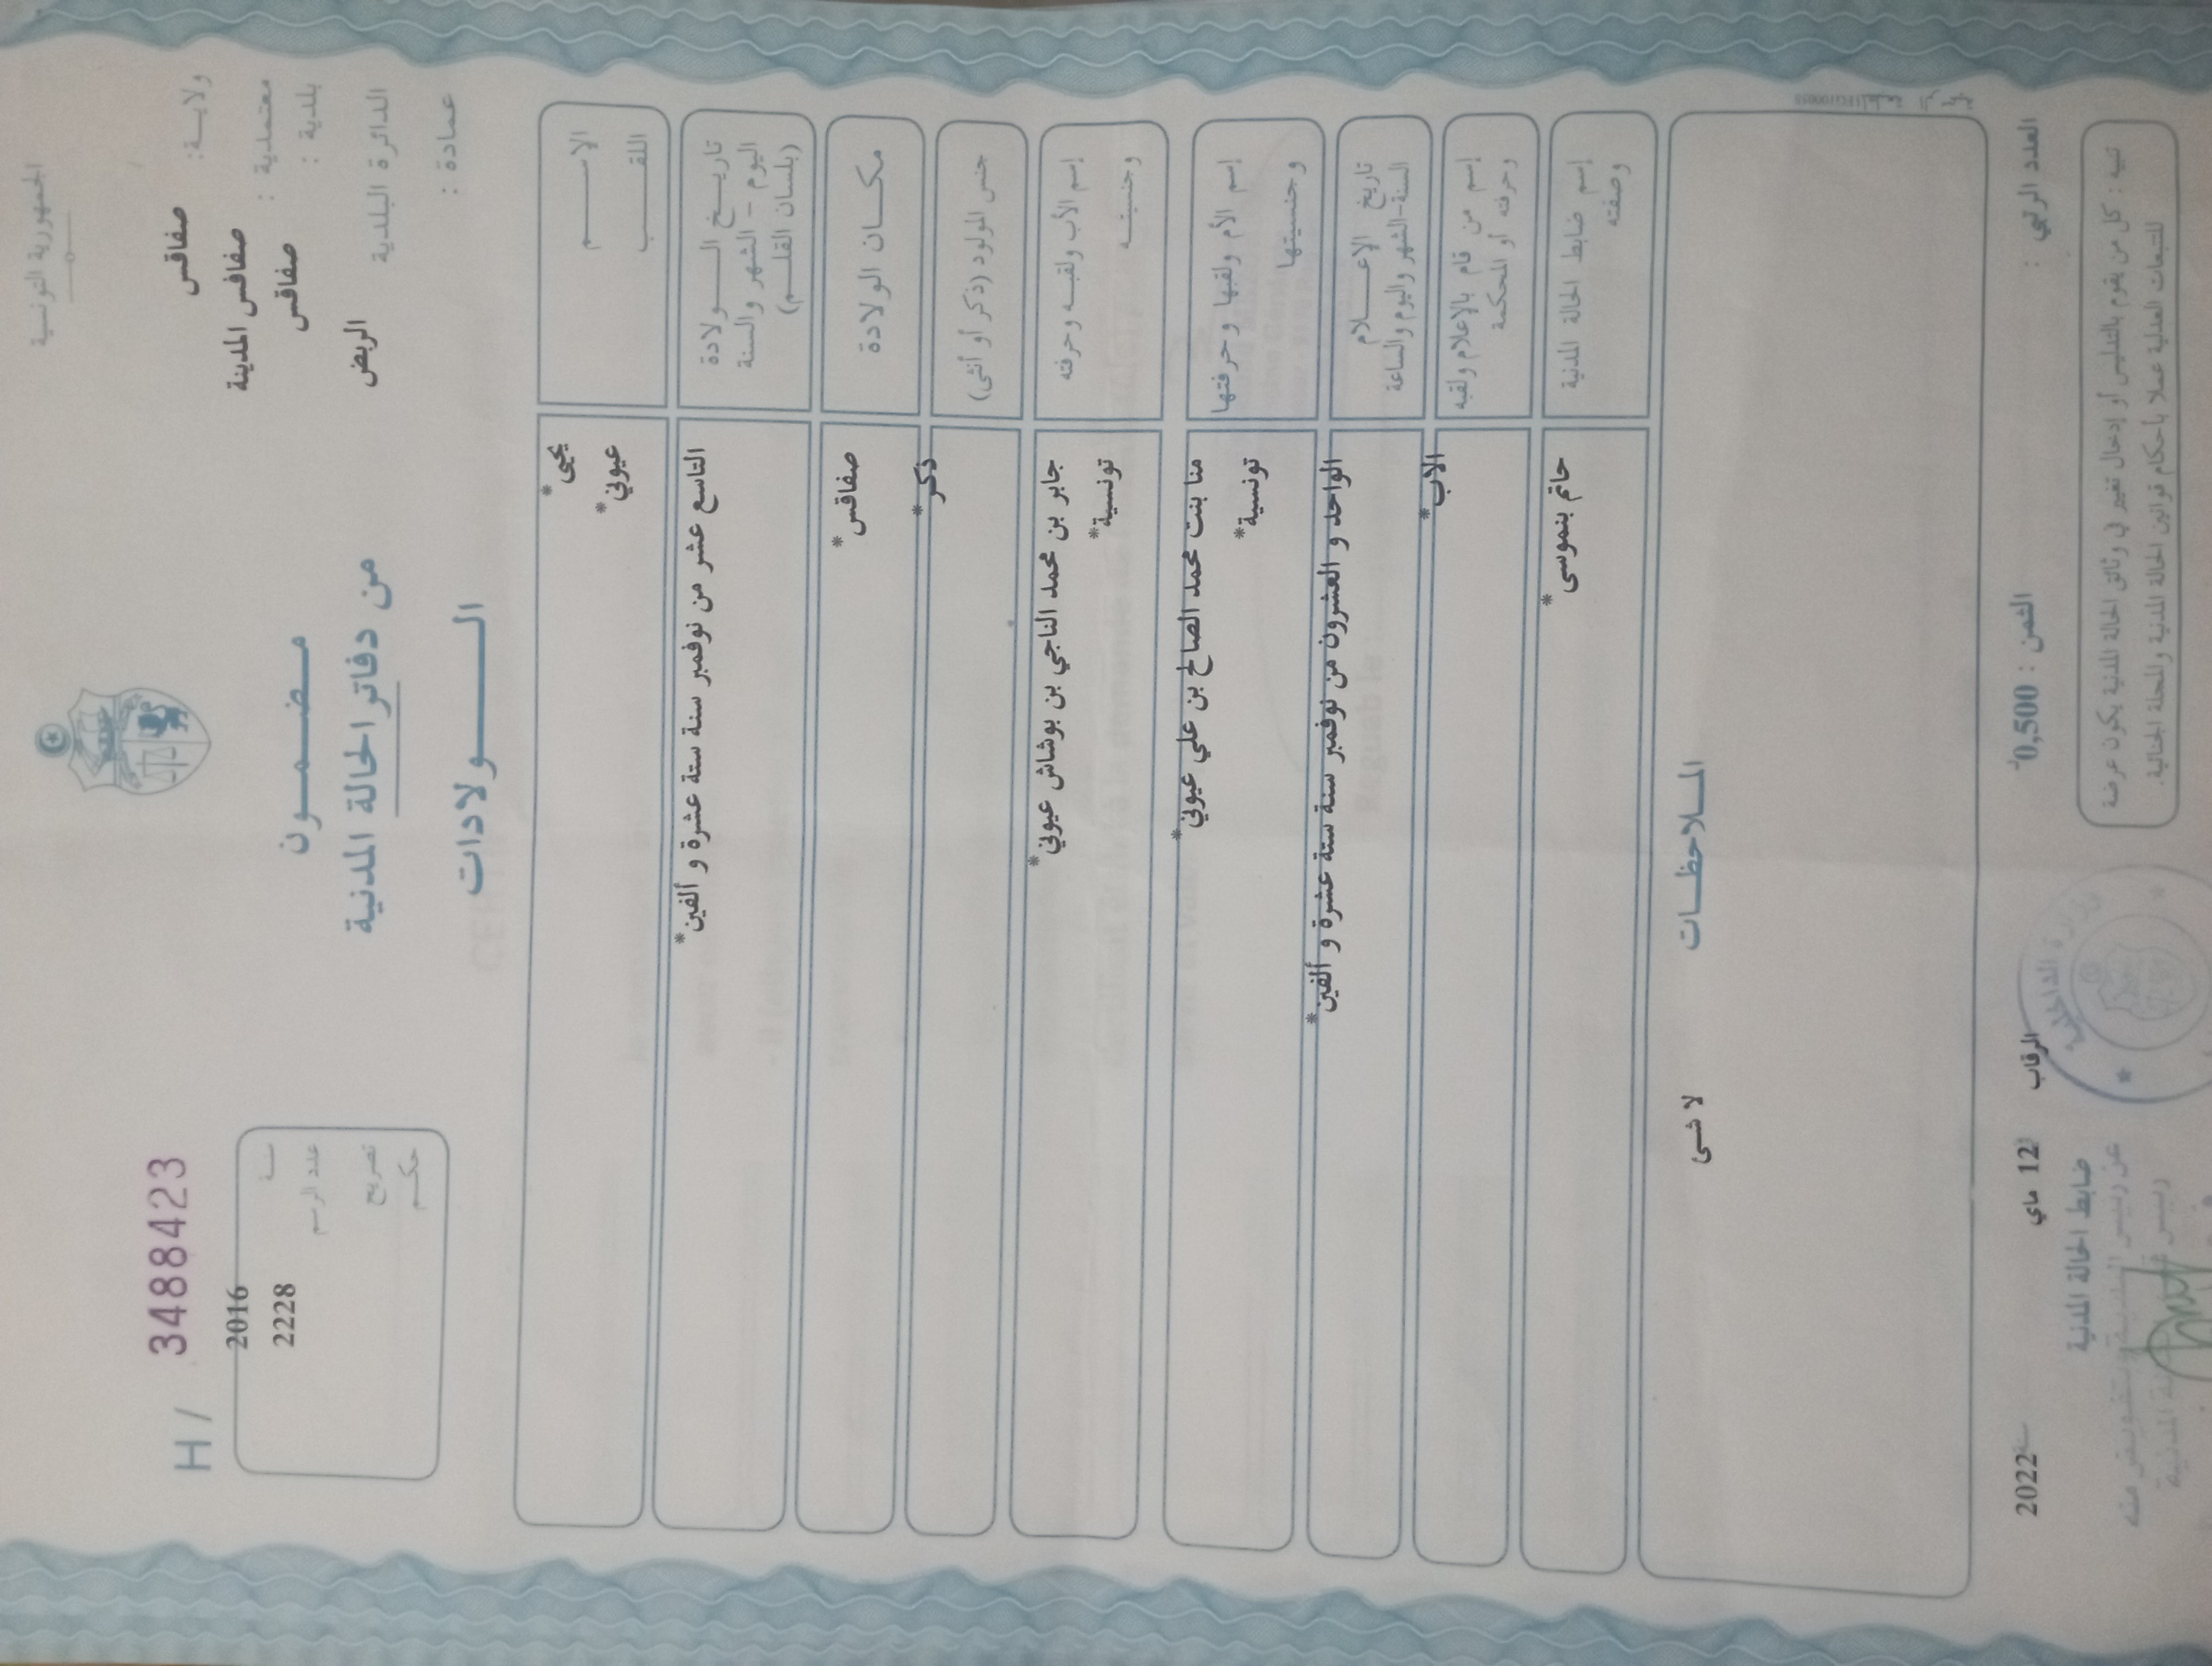 الجمهورية التونسية
ولايـــة: صفاقس
معتمدية : صفاقس المدينة
بلدية : صفاقس
الدائرة البلدية الربض
عمادة :
مـــضـــمـــون
من دفاتر الحالة المدنية
الـــــولادات
H / 3488423
سنـــة 2016
عدد الرسم 2228
تصريح
حكـــم
الإســـــم يحيى*
اللقـــــب عيوني*
تاريـــخ الـــــولادة التاسع عشر من نوفمبر سنة ستة عشرة و ألفين*
اليوم - الشهر والسنة
(بلسان القلـــم)
مكـــان الولادة صفاقس*
جنس المولود (ذكر أو أنثى) ذكر*
إسم الأب ولقبـــه وحرفته جابر بن محمد الناجي بن بوشاش عيوني*
وجنسيتـــه تونسية*
إسم الأم ولقبها وحرفتها منا بنت محمد الصالح بن علي عيوني*
وجنسيتها تونسية*
تاريخ الإعـــــلام الواحد و العشرون من نوفمبر سنة ستة عشرة و ألفين*
السنة-الشهر واليوم والساعة
إسم من قام بالإعلام ولقبه الاب*
وحرفته أو المحكمة
إسم ضابط الحالة المدنية حاتم بنموسى*
وصفته
المـــلاحظـــات
لا شئ
العدد الرتبي :
الثمن : 0,500د
الرقاب 12 ماي سنة 2022
ضابط الحالة المدنية
تنبيه : كل من يقوم بالتدليس أو إدخال تغيير في وثائق الحالة المدنية يكون عرضة
للتتبعات العدلية عملا بأحكام قوانين الحالة المدنية والمجلة الجنائية.
عن رئيس البلدية وبتفويض منه